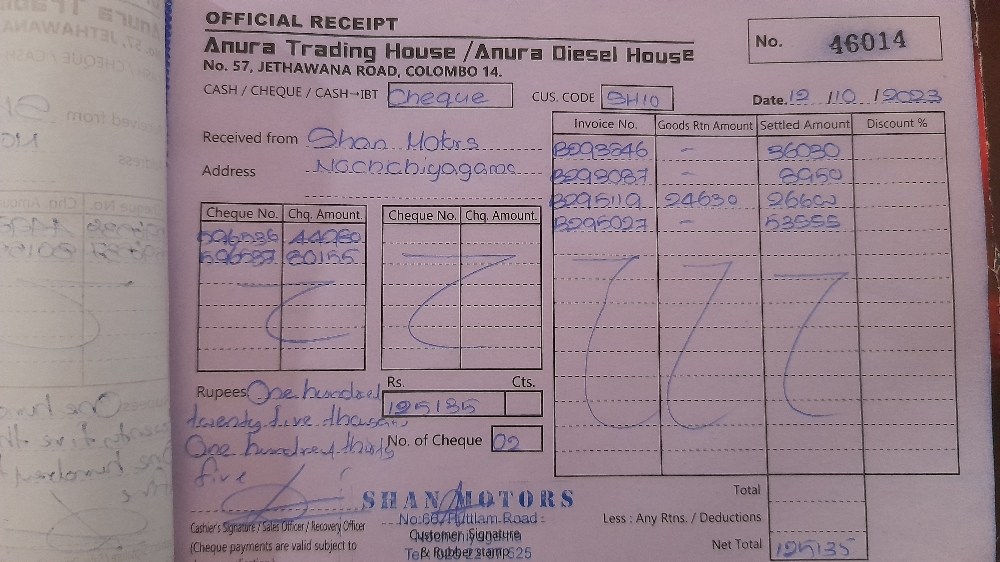 OFFICIAL RECEIPT
Anura Trading House /Anura Diesel House
No. 57, JETHAWANA ROAD, COLOMBO 14.
No. 46014
CASH / CHEQUE / CASH→IBT Cheque
CUS. CODE SH10
Date. 12 /10 /2023
Received from Shan Motors
Address Nochchiyagama
Invoice No. Goods Rtn Amount Settled Amount Discount %
B293546 - 36030
B293087 - 8950
B295119 24630 26600
B295027 - 53555
Cheque No. Chq. Amount. Cheque No. Chq. Amount.
596536 44980
596537 80155
Rupees One hundred
twenty five thousand
One hundred thirty
five
Rs. Cts.
125135
No. of Cheque 02
SHAN MOTORS
No:667 Puttlam Road
Nochchiyagama
Cashier's Signature / Sales Officer / Recovery Officer
(Cheque payments are valid subject to
Customer Signature
& Rubber stamp
Total
Less : Any Rtns. / Deductions
Net Total 125135